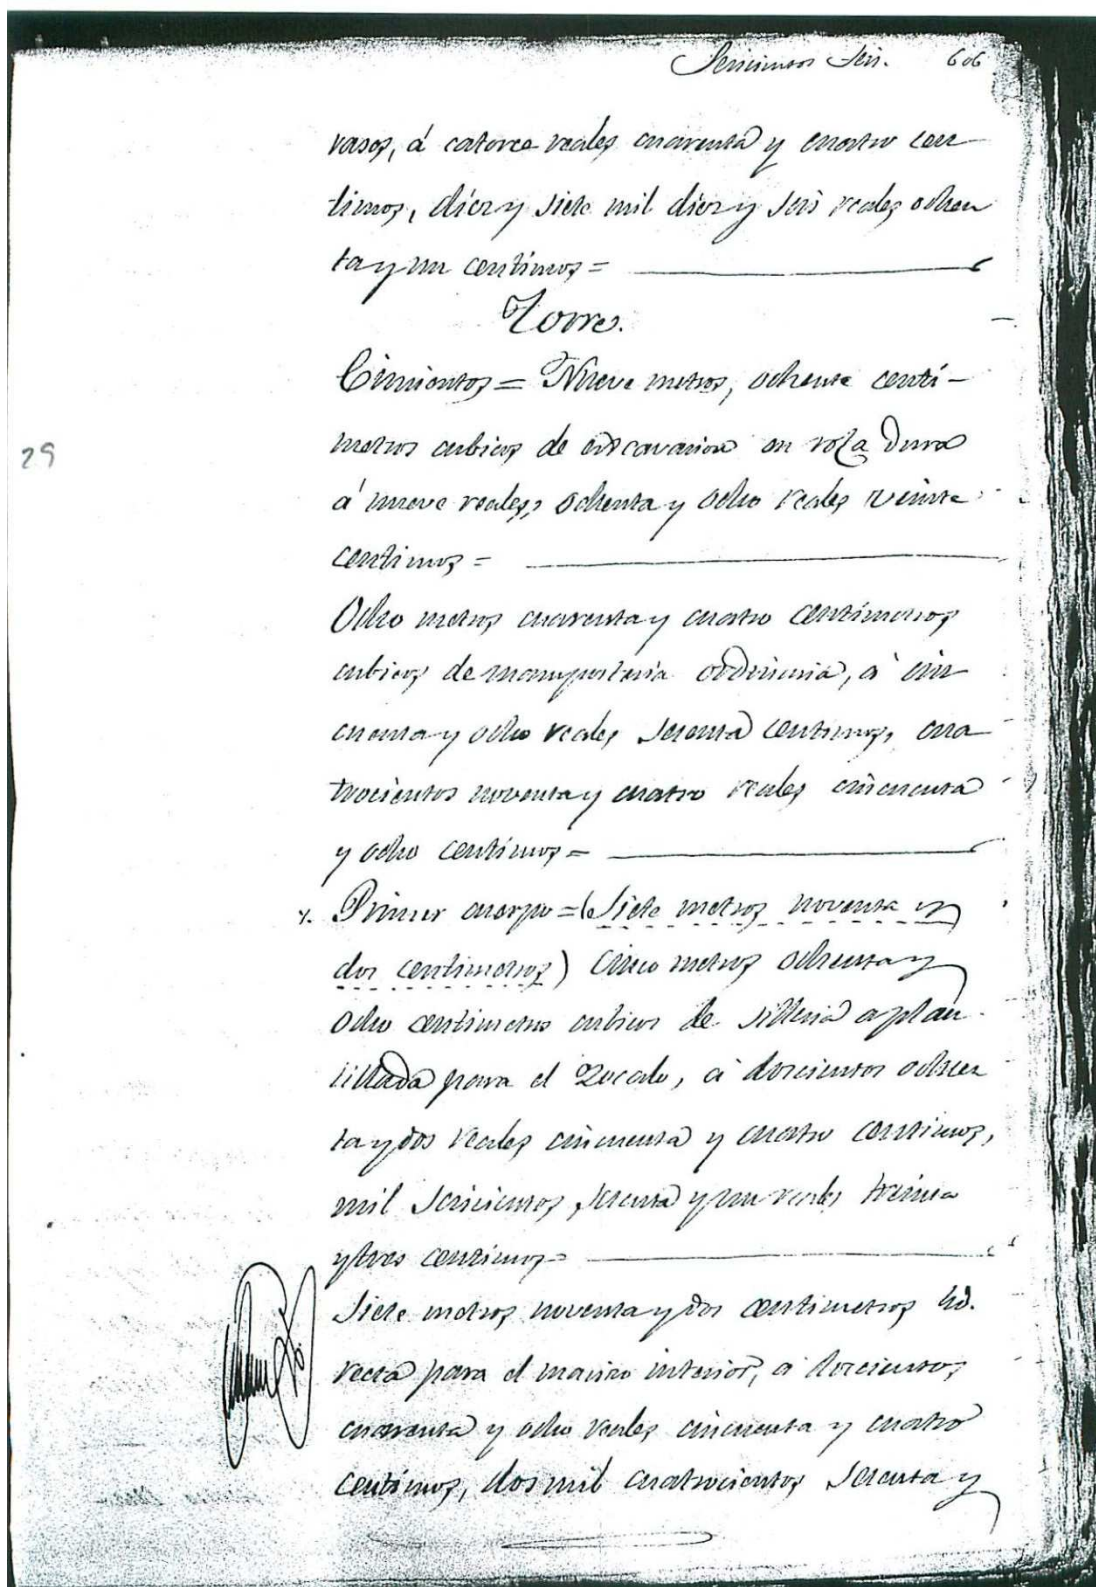 Seiscientos Seis. 606
vasos, á catorce reales cuarenta y cuatro cen
timos, diez y siete mil diez y seis reales ochen
ta y un centimos =
Torre.
Cimientos = Nueve metros, ochenta centi-
metros cubicos de excavacion en roca dura
á nueve reales, ochenta y ocho reales veinte
centimos =
29
Ocho metros cuarenta y cuatro centimetros
cubicos de mamposteria ordinaria, á cin
cuenta y ocho reales sesenta centimos, cua
trocientos noventa y cuatro reales cincuenta
y ocho centimos =
Primer cuerpo = (Siete metros noventa y
dos centimetros) Cinco metros ochenta y
ocho centimetros cubicos de silleria aplan
tillada para el Zocalo, á doscientos ochen
ta y dos reales cincuenta y cuatro centimos,
mil seiscientos, sesenta y un reales treinta
y tres centimos =
Siete metros noventa y dos centimetros id.
recta para el macizo interior, á doscientos,
cuarenta y ocho reales cincuenta y cuatro
centimos, dos mil cuatrocientos sesenta y